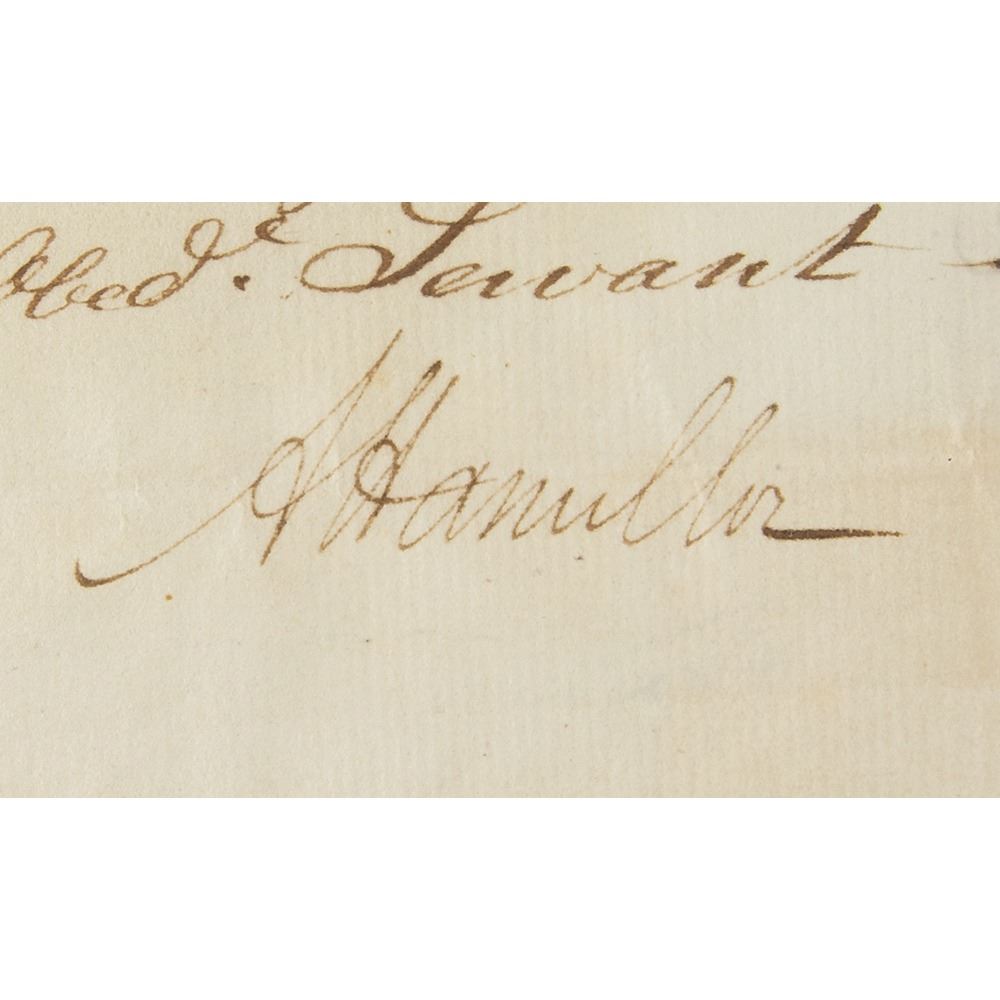 Obed.ᵗ Servant
A Hamilton